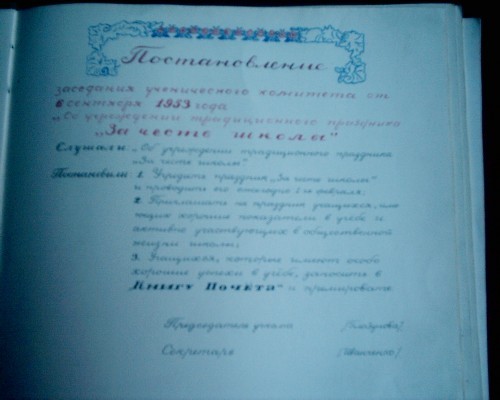 Постановление
заседания ученического комитета от
6 сентября 1953 года
„Об учреждении традиционного праздника
„За честь школы"
Слушали: „Об учреждении традиционного праздника
„За честь школы"
Постановили: 1. Учредить праздник „За честь школы"
и проводить его ежегодно 1го февраля;
2. Приглашать на праздник учащихся, име-
ющих хорошие показатели в учёбе и
активно участвующих в общественной
жизни школы;
3. Учащихся, которые имеют особо
хорошие успехи в учёбе, заносить в
„Книгу Почёта" и премировать
Председатель учкома
Секретарь /Иванченко/